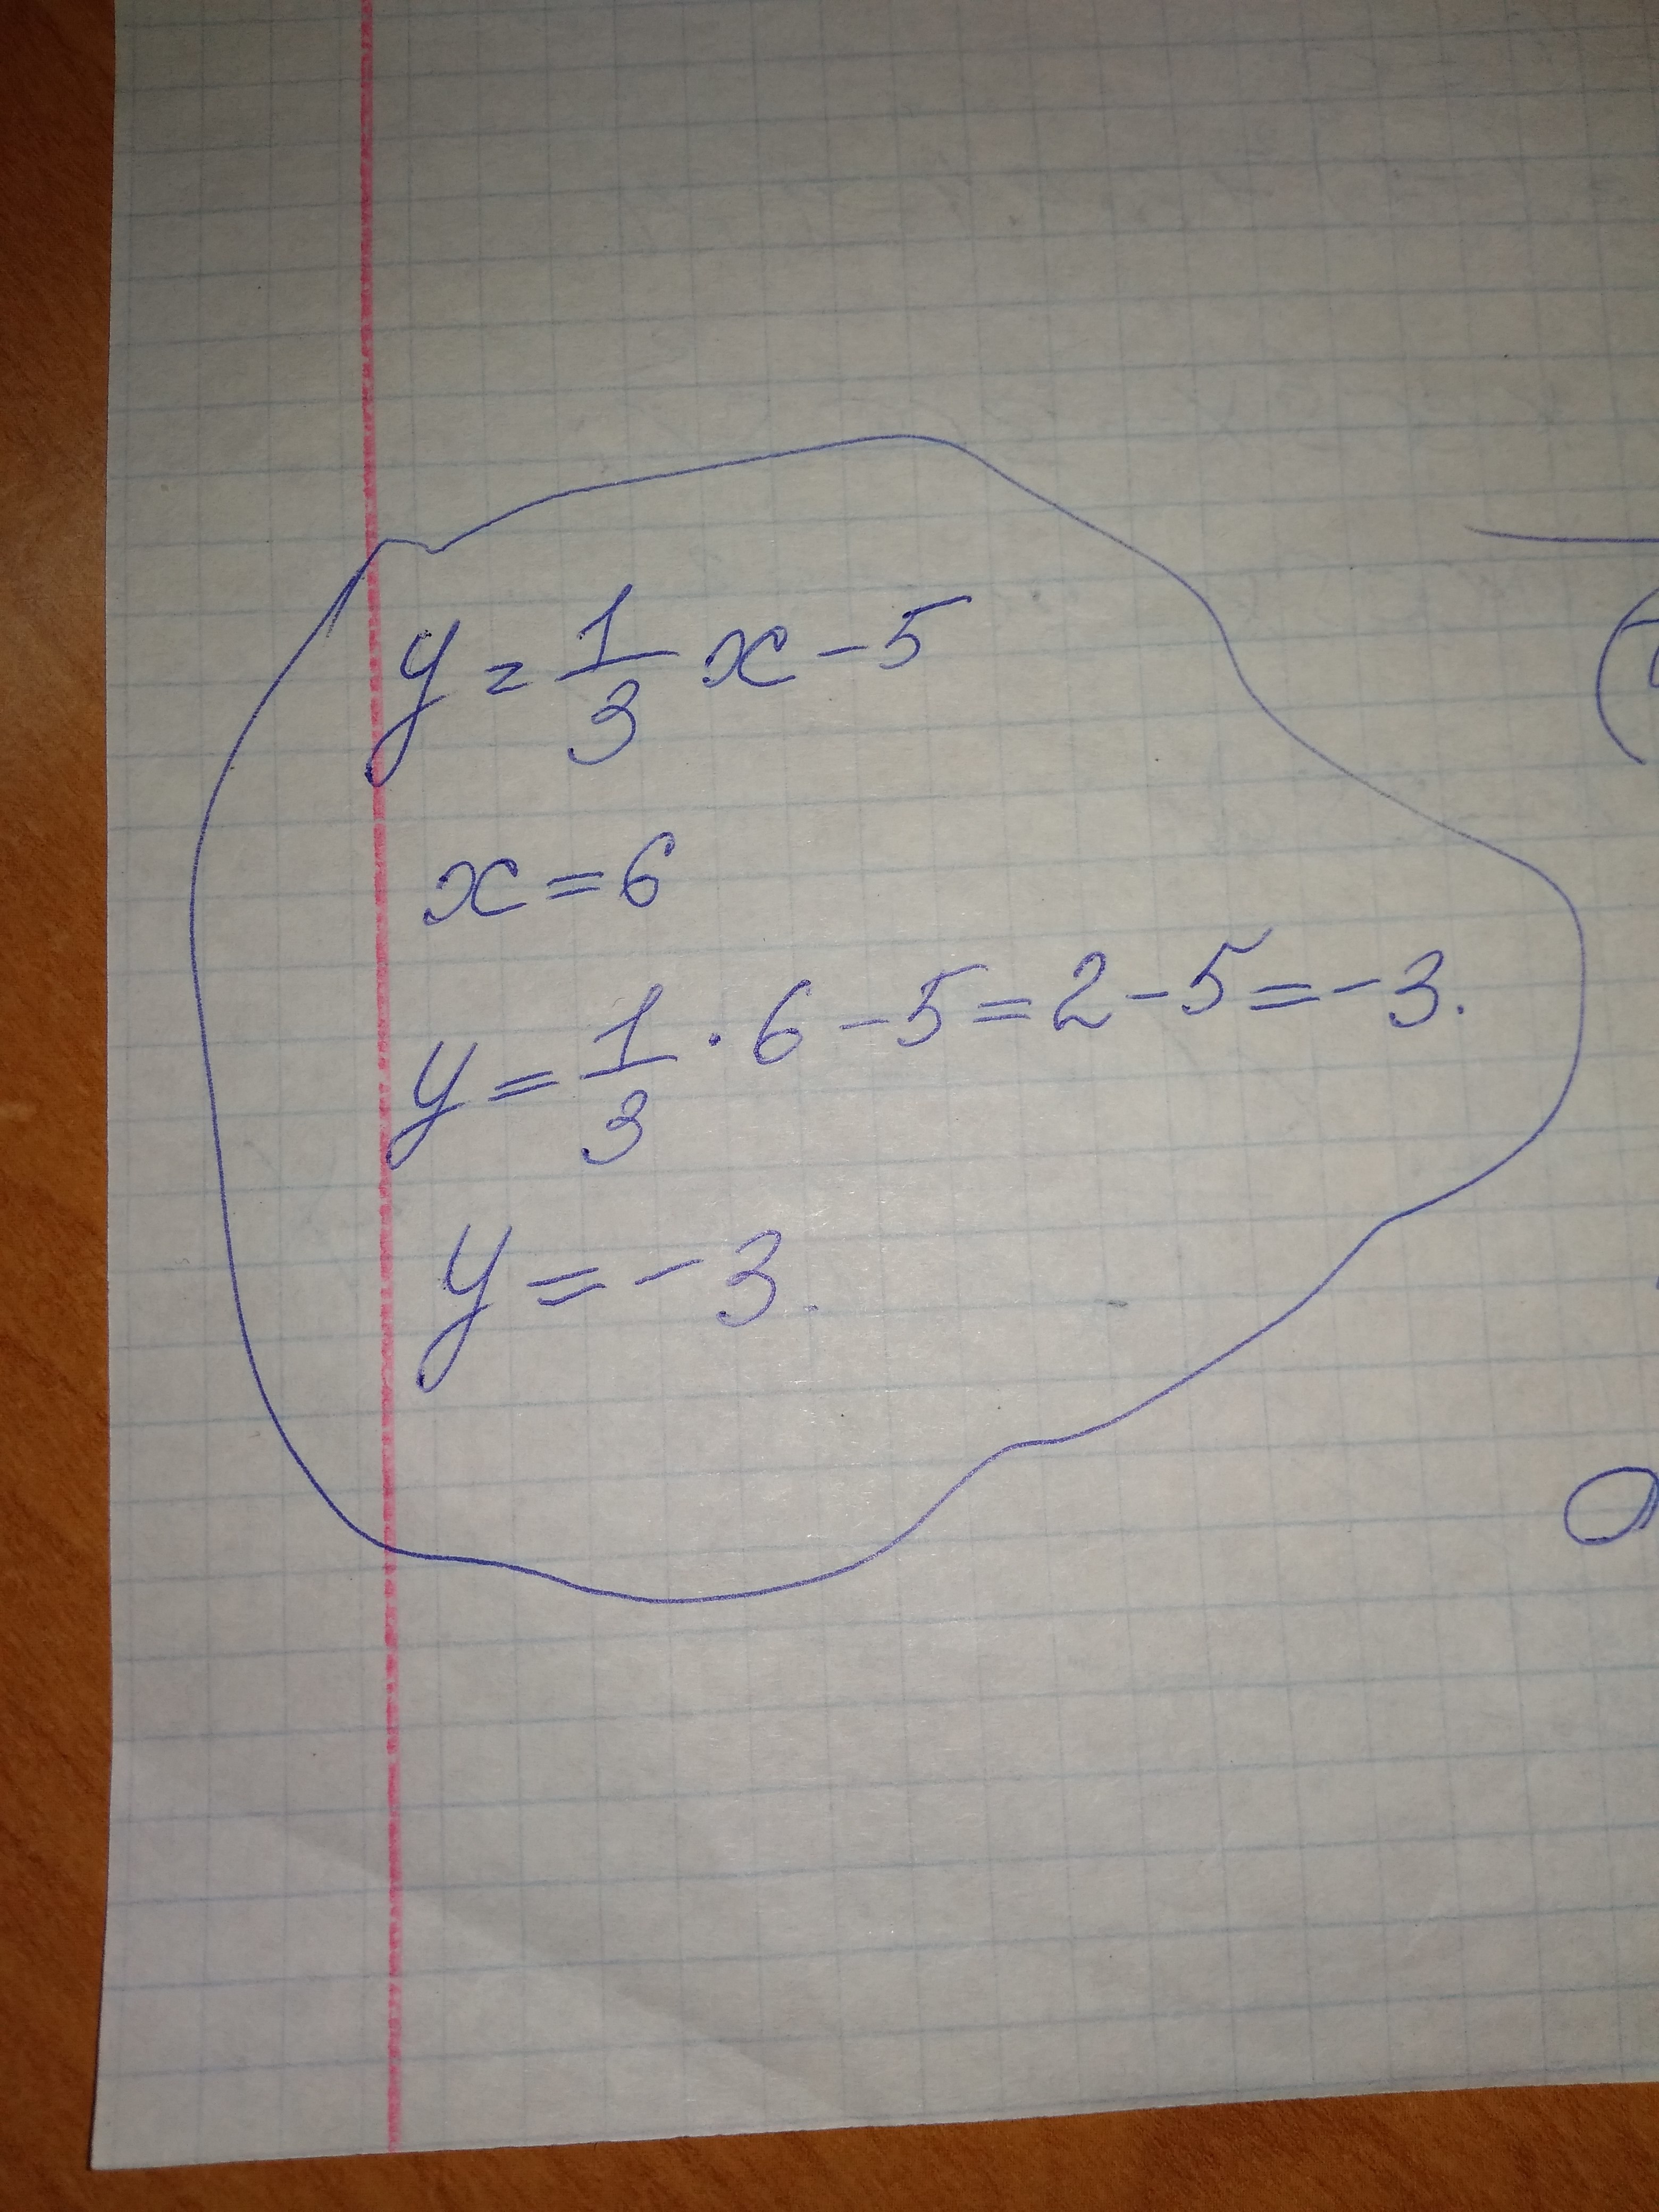 y = 1/3 x - 5
x = 6
y = 1/3 · 6 - 5 = 2 - 5 = -3.
y = -3.